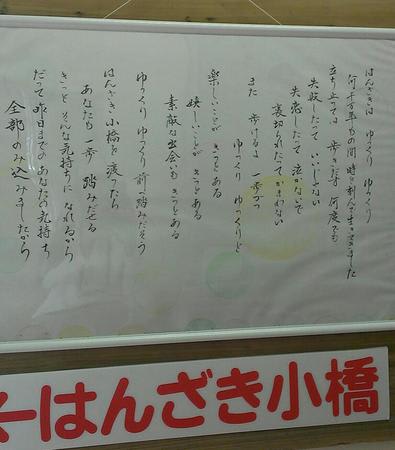 はんざきは ゆっくり ゆっくり
何千万年もの間 時を刻んで生きてきた
立ち止まって 歩きだす 何度でも
失敗したって いいじゃない
失恋したって 泣かないで
裏切られたって かまわない
また 歩けるよ 一歩ずつ
ゆっくり ゆっくりと
楽しいことが きっとある
嬉しいことが きっとある
素敵な出会いも きっとある
ゆっくり ゆっくり 前へ踏みだそう
はんざき小橋を渡ったら
あなたも 一歩 踏みだせる
きっと そんな気持ちに なれるから
だって 昨日までの あなたの気持ち
全部 のみ込みましたから
はんざき小橋